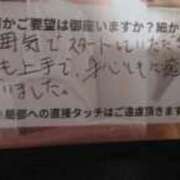 かご要望は御座いますか?細か
囲気でスタートしていただ
も上手で、身心ともた
いました。
局部への直接タッチはご遠慮頂きます